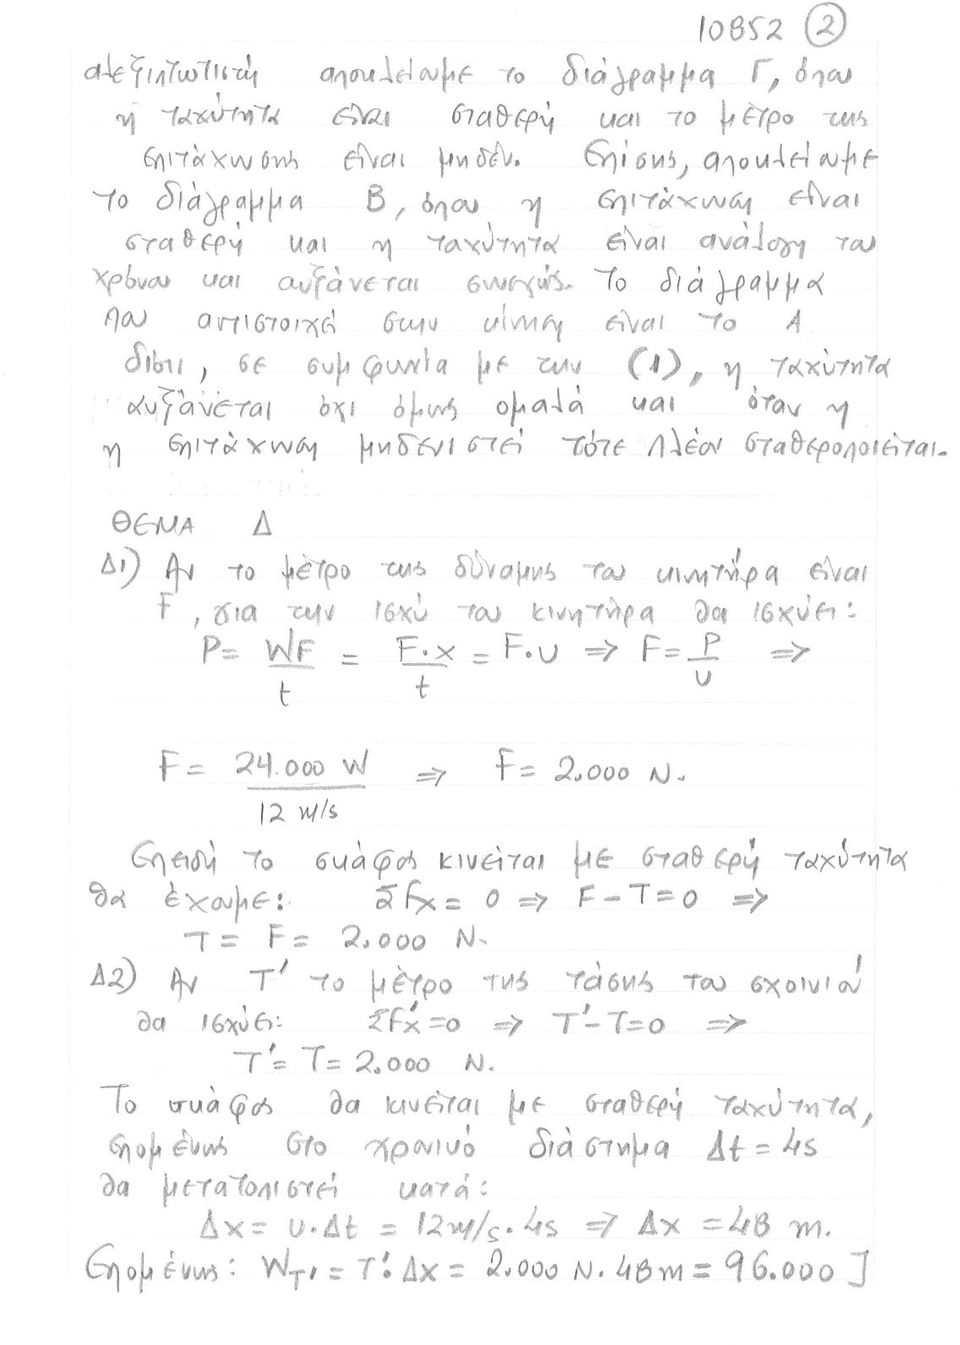 10852 2
αλεξιπτωτιστή αποκλείουμε το διάγραμμα Γ, όπου
η ταχύτητα είναι σταθερή και το μέτρο της
επιτάχυνσης είναι μηδέν. Επίσης, αποκλείουμε
το διάγραμμα Β, όπου η επιτάχυνση είναι
σταθερή και η ταχύτητα είναι ανάλογη του
χρόνου και αυξάνεται συνεχώς. Το διάγραμμα
που αντιστοιχεί στην κίνηση είναι το Α
διότι, σε συμφωνία με την (1), η ταχύτητα
αυξάνεται όχι όμως ομαλά και όταν η
η επιτάχυνση μηδενιστεί τότε πλέον σταθεροποιείται.
ΘΕΜΑ Δ
Δ1) Αν το μέτρο της δύναμης του κινητήρα είναι
F, για την ισχύ του κινητήρα θα ισχύει:
P = WF/t = F·x/t = F·υ ⇒ F = P/υ ⇒
F = 24.000 W/12 m/s ⇒ F = 2.000 N.
Επειδή το σκάφος κινείται με σταθερή ταχύτητα
θα έχουμε: ΣFx = 0 ⇒ F - T = 0 ⇒
T = F = 2.000 N.
Δ2) Αν T' το μέτρο της τάσης του σχοινιού
θα ισχύει: ΣF'x = 0 ⇒ T' - T = 0 ⇒
T' = T = 2.000 N.
Το σκάφος θα κινείται με σταθερή ταχύτητα,
επομένως στο χρονικό διάστημα Δt = 4s
θα μετατοπιστεί κατά:
Δx = υ·Δt = 12m/s·4s ⇒ Δx = 48 m.
Επομένως: WT' = T'·Δx = 2.000 N·48m = 96.000 J